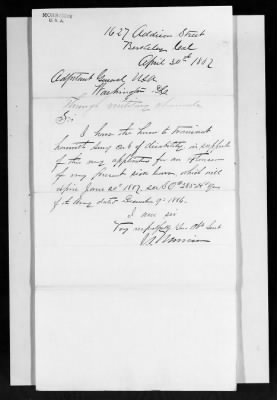 1627 Addison Street
Berkeley Cal
April 30th
Adjutant General U.S.A.
Washington D.C.
Through military channels
Sir
I have the honor to transmit
herewith surg. certf. of disability in support
of this my application for an extension
of my present sick leave which will
expire June 20"
of the Army dated December 9"
I am sir
Very respectfully